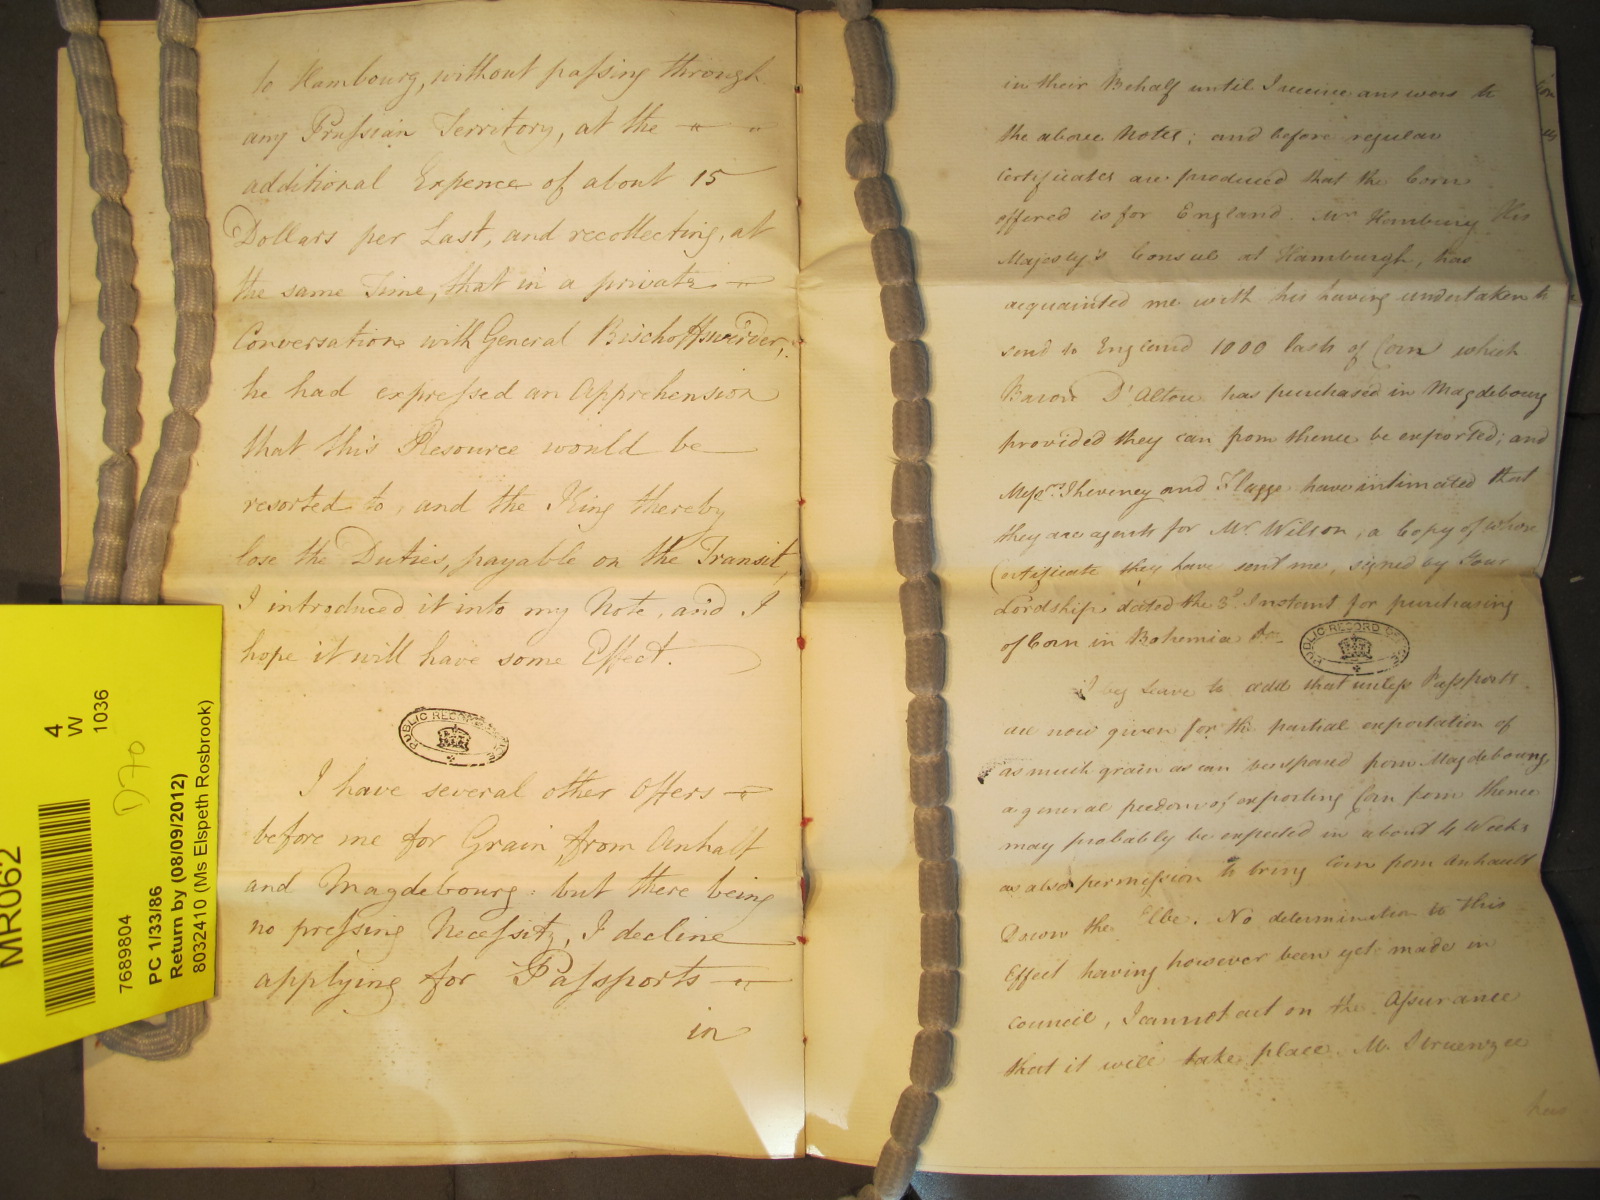 to Hambourg, without passing through
any Prussian Territory, at the
additional Expence of about 15
Dollars per Last, and recollecting, at
the same Time, that in a private
Conversation with General Bischoffswerder,
he had expressed an Apprehension
that this Resource would be
resorted to, and the King thereby
lose the Duties, payable on the Transit,
I introduced it into my Note, and I
hope it will have some Effect.
PUBLIC RECORD OFFICE
I have several other Offers
before me for Grain from Anhalt
and Magdebourg: but there being
no pressing Necessity, I decline
applying for Passports
in
in their Behalf until I receive answers to
the above Notes; and before regular
Certificates are produced that the Corn
offered is for England. Mr Hanbury His
Majesty's Consul at Hamburgh, has
acquainted me with his having undertaken to
send to England 1000 lasts of Corn which
Baron D'Alton has purchased in Magdebourg
provided they can from thence be exported; and
Messrs Theveney and Flagge have intimated that
they are agents for Mr Wilson, a Copy of whose
Certificate they have sent me, signed by Your
Lordship dated the 3d Instant for purchasing
of Corn in Bohemia &c
PUBLIC RECORD OFFICE
I beg leave to add that unless Passports
are now given for the partial exportation of
as much grain as can be spared from Magdebourg,
a general freedom of exporting Corn from thence
may probably be expected in about 4 Weeks
as also permission to bring Corn from Anhault
Down the Elbe. No determination to this
Effect having however been yet made in
Council, I cannot act on the Assurance
that it will take place. M. Struenzee
has
MR062
4
W
1036
D70
7689804
PC 1/33/86
Return by (08/09/2012)
8032410 (Ms Elspeth Rosbrook)